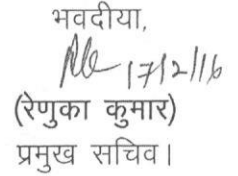 भवदीया,
17/2/16
(रेणुका कुमार)
प्रमुख सचिव।